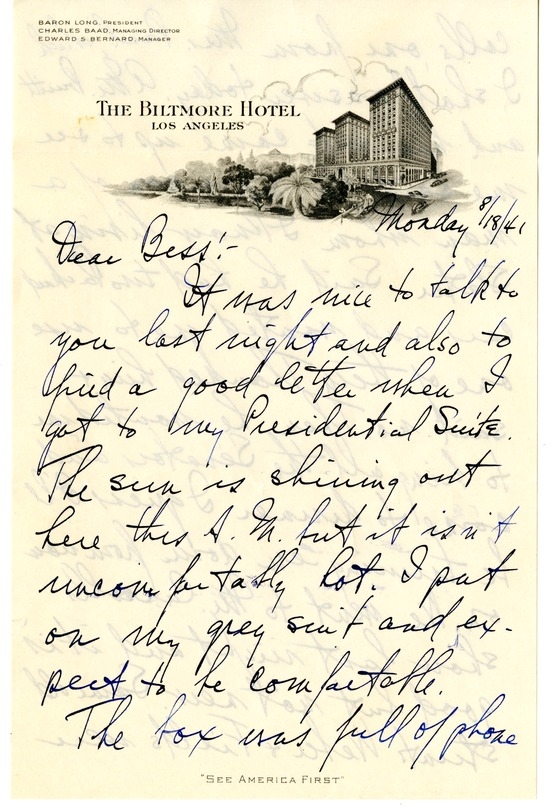 BARON LONG, PRESIDENT
CHARLES BAAD, MANAGING DIRECTOR
EDWARD S. BERNARD, MANAGER
THE BILTMORE HOTEL
LOS ANGELES
Monday 8/18/41
Dear Bess:-
It was nice to talk to
you last night and also to
find a good letter when I
got to my Presidential Suite.
The sun is shining out
here this A. M. but it isn't
uncomfortably hot. I put
on my grey suit and ex-
pect to be comfortable.
The box was full of phone
"SEE AMERICA FIRST"